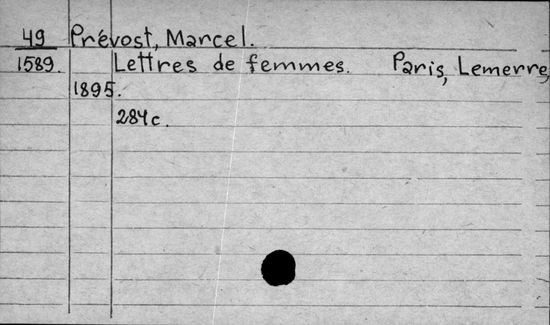 49 Prévost, Marcel.
1589. Lettres de femmes. Paris, Lemerre,
1895.
284 c.